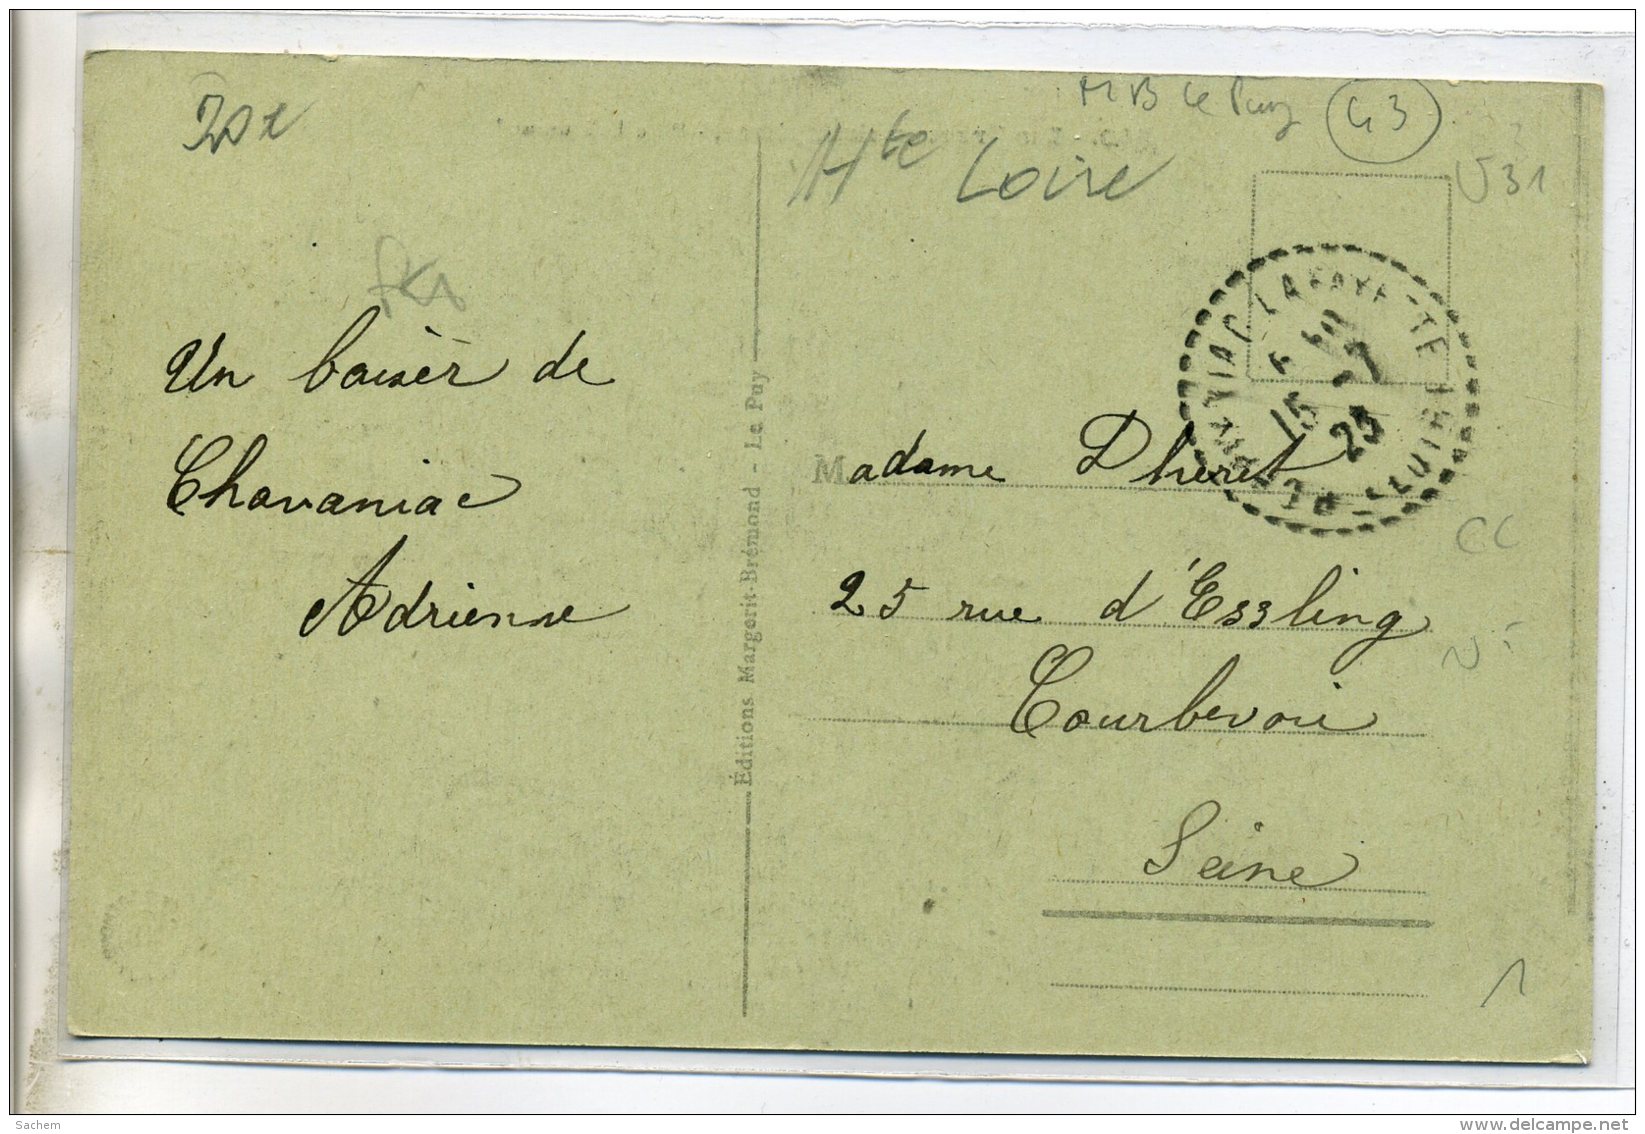 Hte Loire
MB Le Puy
43
V31
Un baiser de
Chavaniac
Adrienne
Éditions Margerit-Brémond - Le Puy
CHAVANIAC LAFAYETTE
15
25
Madame Dheret
25 rue d'Essling
Courbevoie
Seine
CC
1
Sachem
delcampe.net